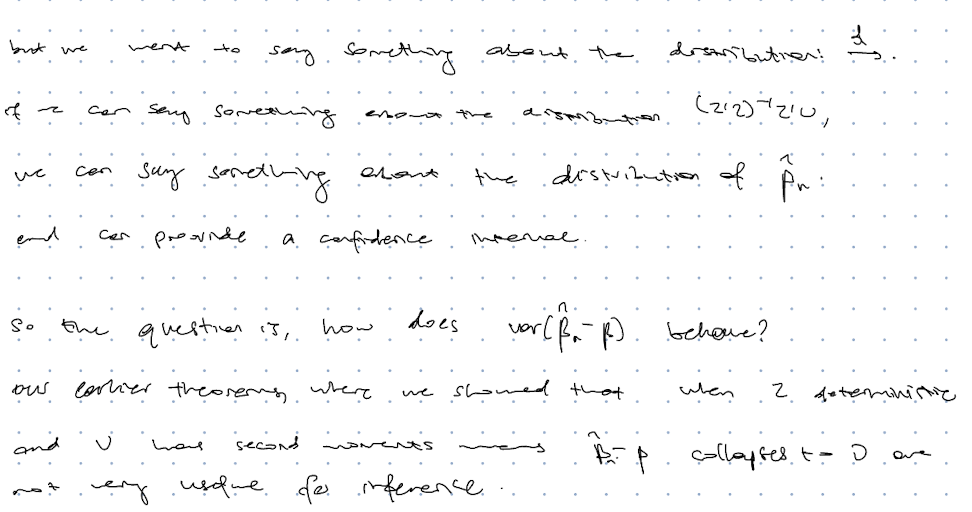 but we want to say something about the distribution: →d.
if we can say something about the distribution (Z'Z)⁻¹Z'U,
we can say something about the distribution of β̂ₙ:
and can provide a confidence interval.
so the question is, how does var(β̂ₙ - β) behave?
our earlier theorems, where we showed that when Z deterministic
and U has second moments means β̂ₙ - β collapses to 0 are
not very useful for inference.